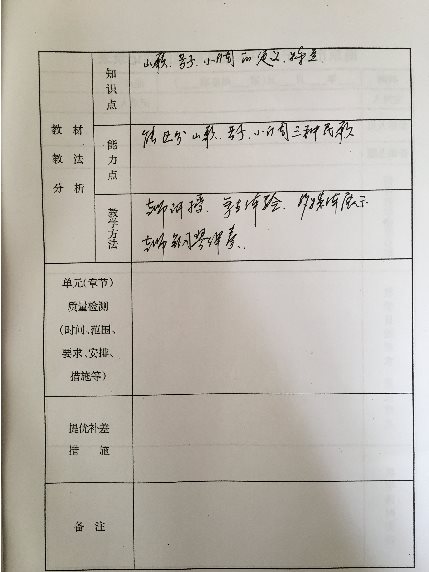 教材
教法
分析
知识点
山歌、号子、小调的定义、特点
能力点
能区分山歌、号子、小调三种民歌
教学方法
老师讲授、学生体验、多媒体展示
老师钢琴弹奏、
单元(章节)
质量检测
(时间、范围、
要求、安排、
措施等)
提优补差
措施
备注